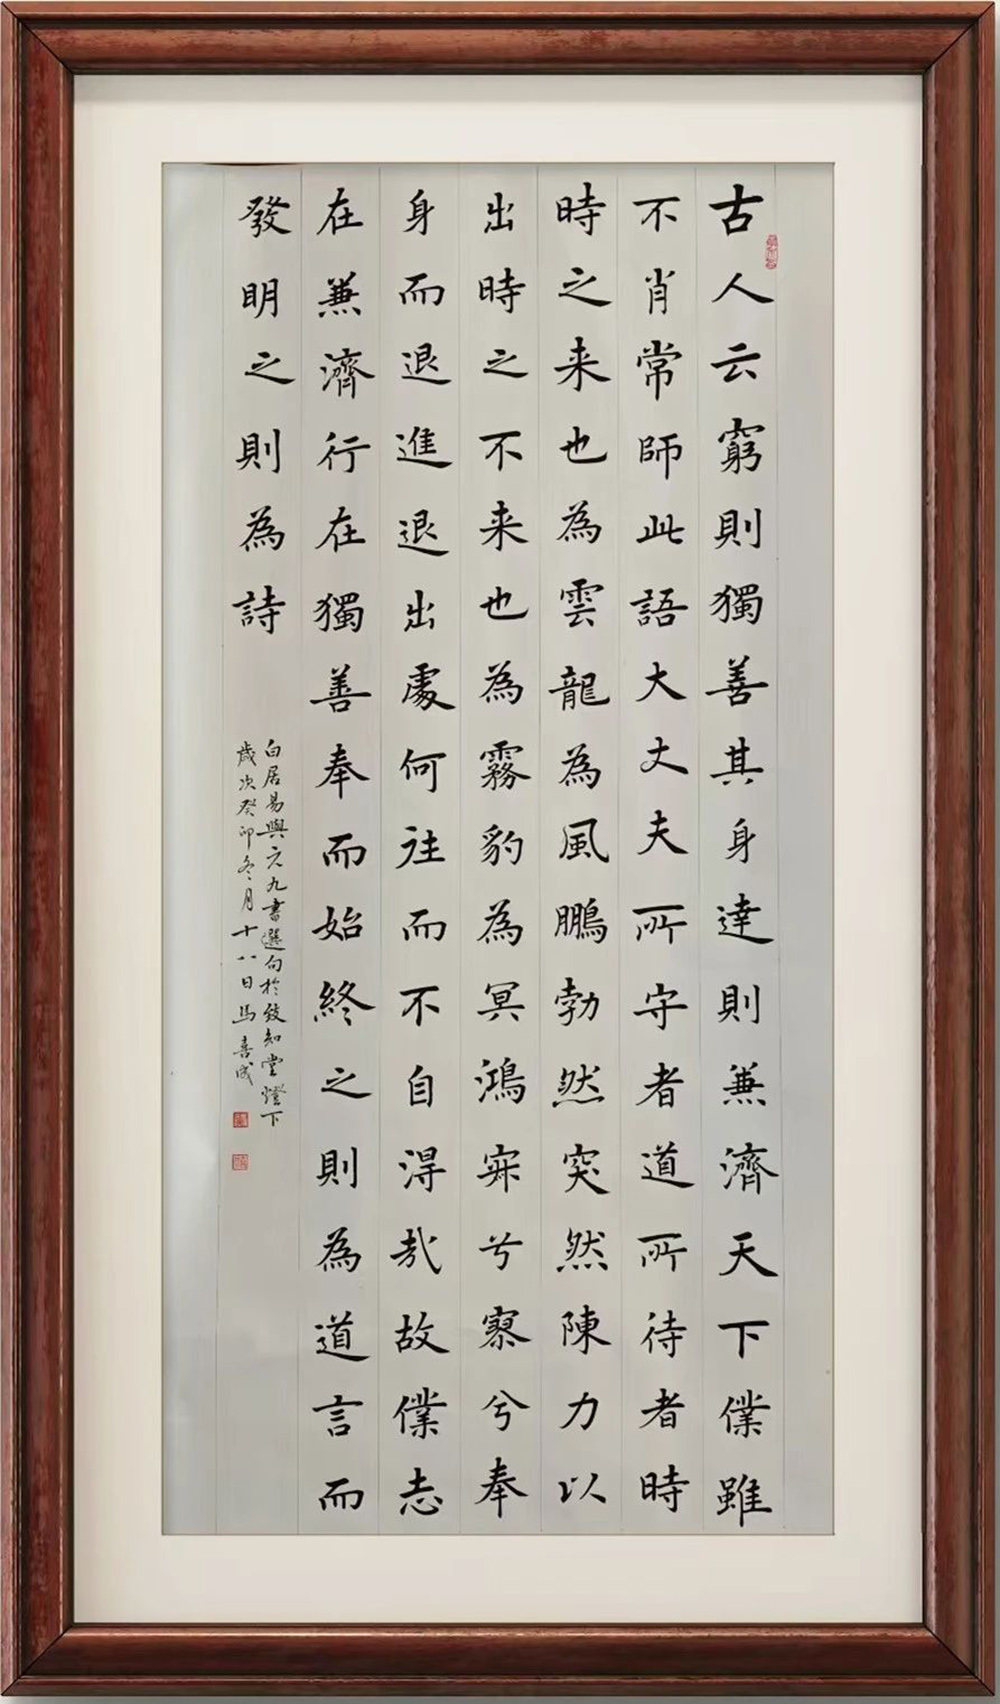 古人云窮則獨善其身達則兼濟天下僕雖
不肖常師此語大丈夫所守者道所待者時
時之来也為雲龍為風鵬勃然突然陳力以
出時之不来也為霧豹為冥鴻寂兮寥兮奉
身而退進退出處何往而不自得哉故僕志
在兼濟行在獨善奉而始終之則為道言而
發明之則為詩
白居易與元九書選句於致知堂燈下
歲次癸卯冬月十八日馬喜成